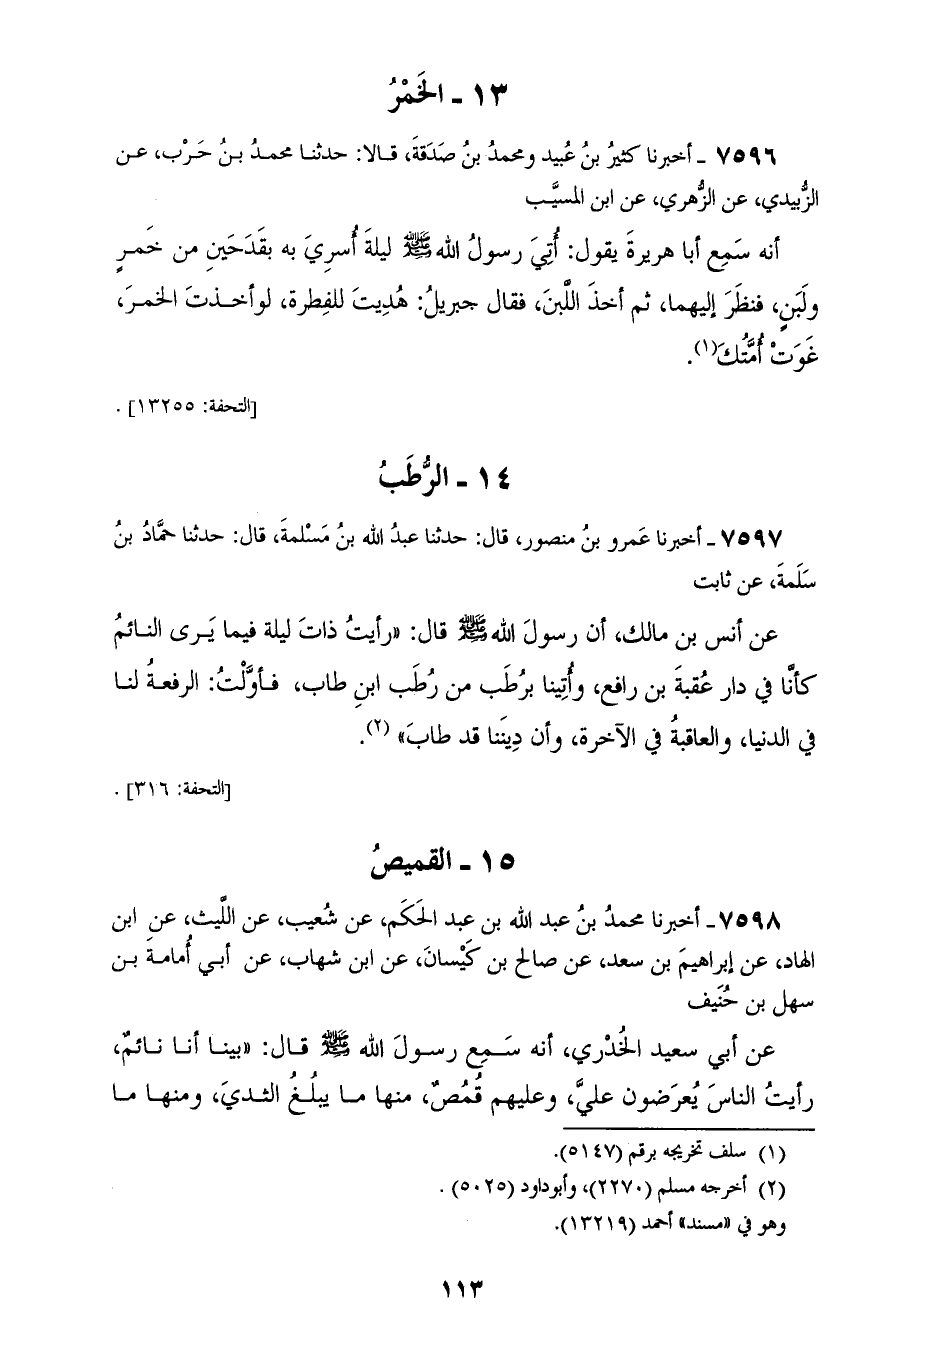 ١٣ ـ الخَمْرُ
٧٥٩٦ ـ أخبرنا كثيرُ بنُ عُبيد ومحمدُ بنُ صَدَقةَ، قـالا: حدثنـا محمـدُ بـنُ حَـرْب، عـن
الزُّبيدي، عن الزُّهري، عن ابن المسيَّب
أنه سَمِع أبا هريرةَ يقول: أُتِيَ رسولُ اللهﷺ ليلةَ أُسرِيَ به بقَدَحَينِ من خَمـرٍ
ولَبَنٍ، فنظَرَ إليهما، ثم أخذَ اللَّبنَ، فقال جبريلُ: هُدِيتَ للفِطرة، لوأخـذتَ الخمـرَ،
غَوَتْ أُمَّتُكَ(١).
[التحفة: ١٣٢٥٥] .
١٤ ـ الرُّطَبُ
٧٥٩٧ ـ أخبرنا عَمرو بنُ منصور، قال: حدثنا عبدُ الله بنُ مَسْلمةَ، قال: حدثنا حمَّادُ بنُ
سَلَمةَ، عن ثابت
عن أنس بن مالك، أن رسولَ اللهﷺ قال: «رأيتُ ذاتَ ليلة فيما يَـرى النـائمُ
كأنَّا في دار عُقبةَ بن رافع، وأُتِينا برُطَب من رُطَب ابنِ طاب، فـأوَّلْتُ: الرفعـةُ لنـا
في الدنيا، والعاقبةُ في الآخرة، وأن دِينَنا قد طابَ» (٢).
[التحفة: ٣١٦] .
١٥ ـ القميصُ
٧٥٩٨ ـ أخبرنا محمدُ بنُ عبد الله بن عبد الحَكَم، عن شُعيب، عن اللَّيث، عن ابن
الهاد، عن إبراهيمَ بن سعد، عن صالح بن كَيْسانَ، عن ابن شهاب، عن أبي أُمامـةَ بـن
سهل بن حُنَيف
عن أبي سعيد الخُدْري، أنه سَـمِع رسـولَ الله ﷺ قـال: «بينـا أنـا نـائمٌ،
رأيتُ الناسَ يُعرَضون عليَّ، وعليهم قُمُصٌ، منها مـا يبلُـغُ الثـديَ، ومنهـا مـا
(١) سلف تخريجه برقم (٥١٤٧).
(٢) أخرجه مسلم (٢٢٧٠)، وأبوداود (٥٠٢٥) .
وهو في «مسند» أحمد (١٣٢١٩).
١١٣